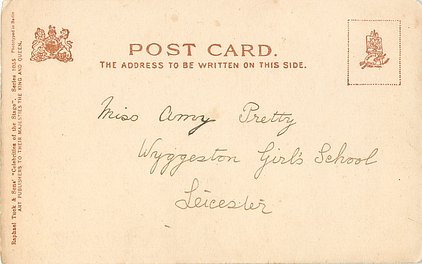 POST CARD.
THE ADDRESS TO BE WRITTEN ON THIS SIDE.
Miss Amy Pretty
Wyggeston Girl's School
Leicester
Raphael Tuck & Sons' "Celebrities of the Stage", Series
ART PUBLISHERS TO THEIR MAJESTIES THE KING AND QUEEN.